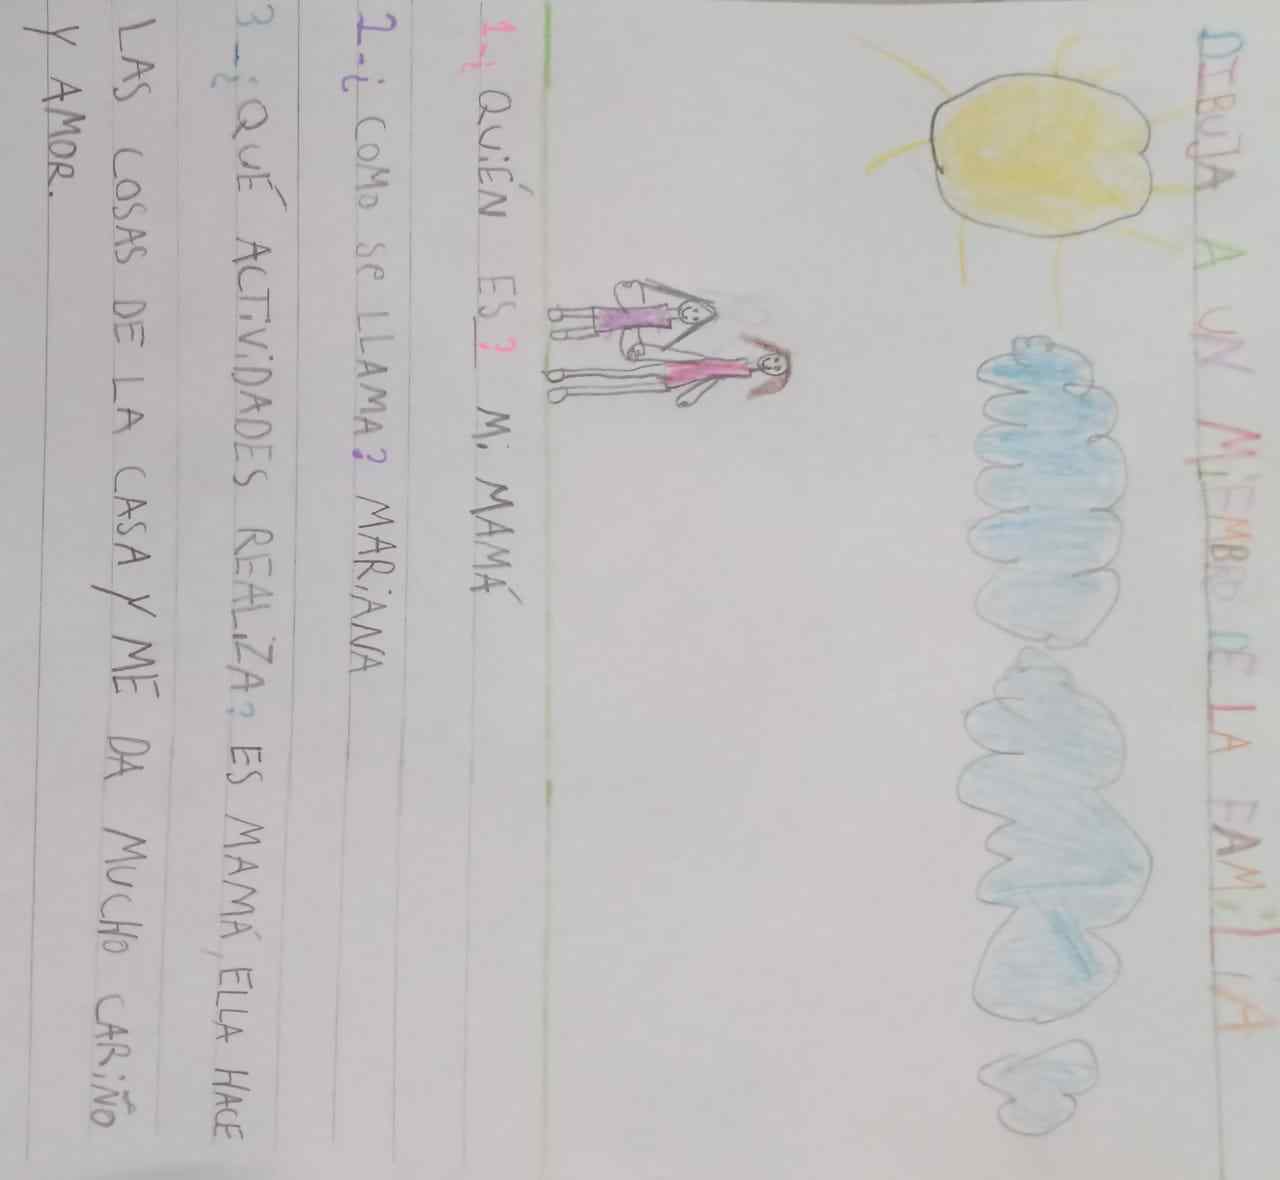 DIBUJA A UN MiEMBRO DE LA FAMiLiA
1-¿ QUiÉN ES? Mi MAMÁ
2-¿ COMO Se LLAMA? MARiANA
3-¿ QUÉ ACTiViDADES REALiZA? ES MAMÁ, ELLA HACE
LAS COSAS DE LA CASA Y ME DA MUCHO CARiÑO
Y AMOR.